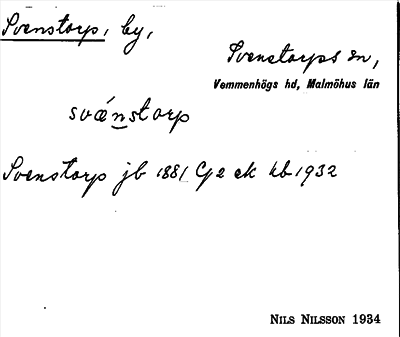 Svenstorp, by,
Svenstorps sn,
Vemmenhögs hd, Malmöhus län
svǽnstorp
Svenstorp jb 1881 G2 ek kb 1932
NILS NILSSON 1934